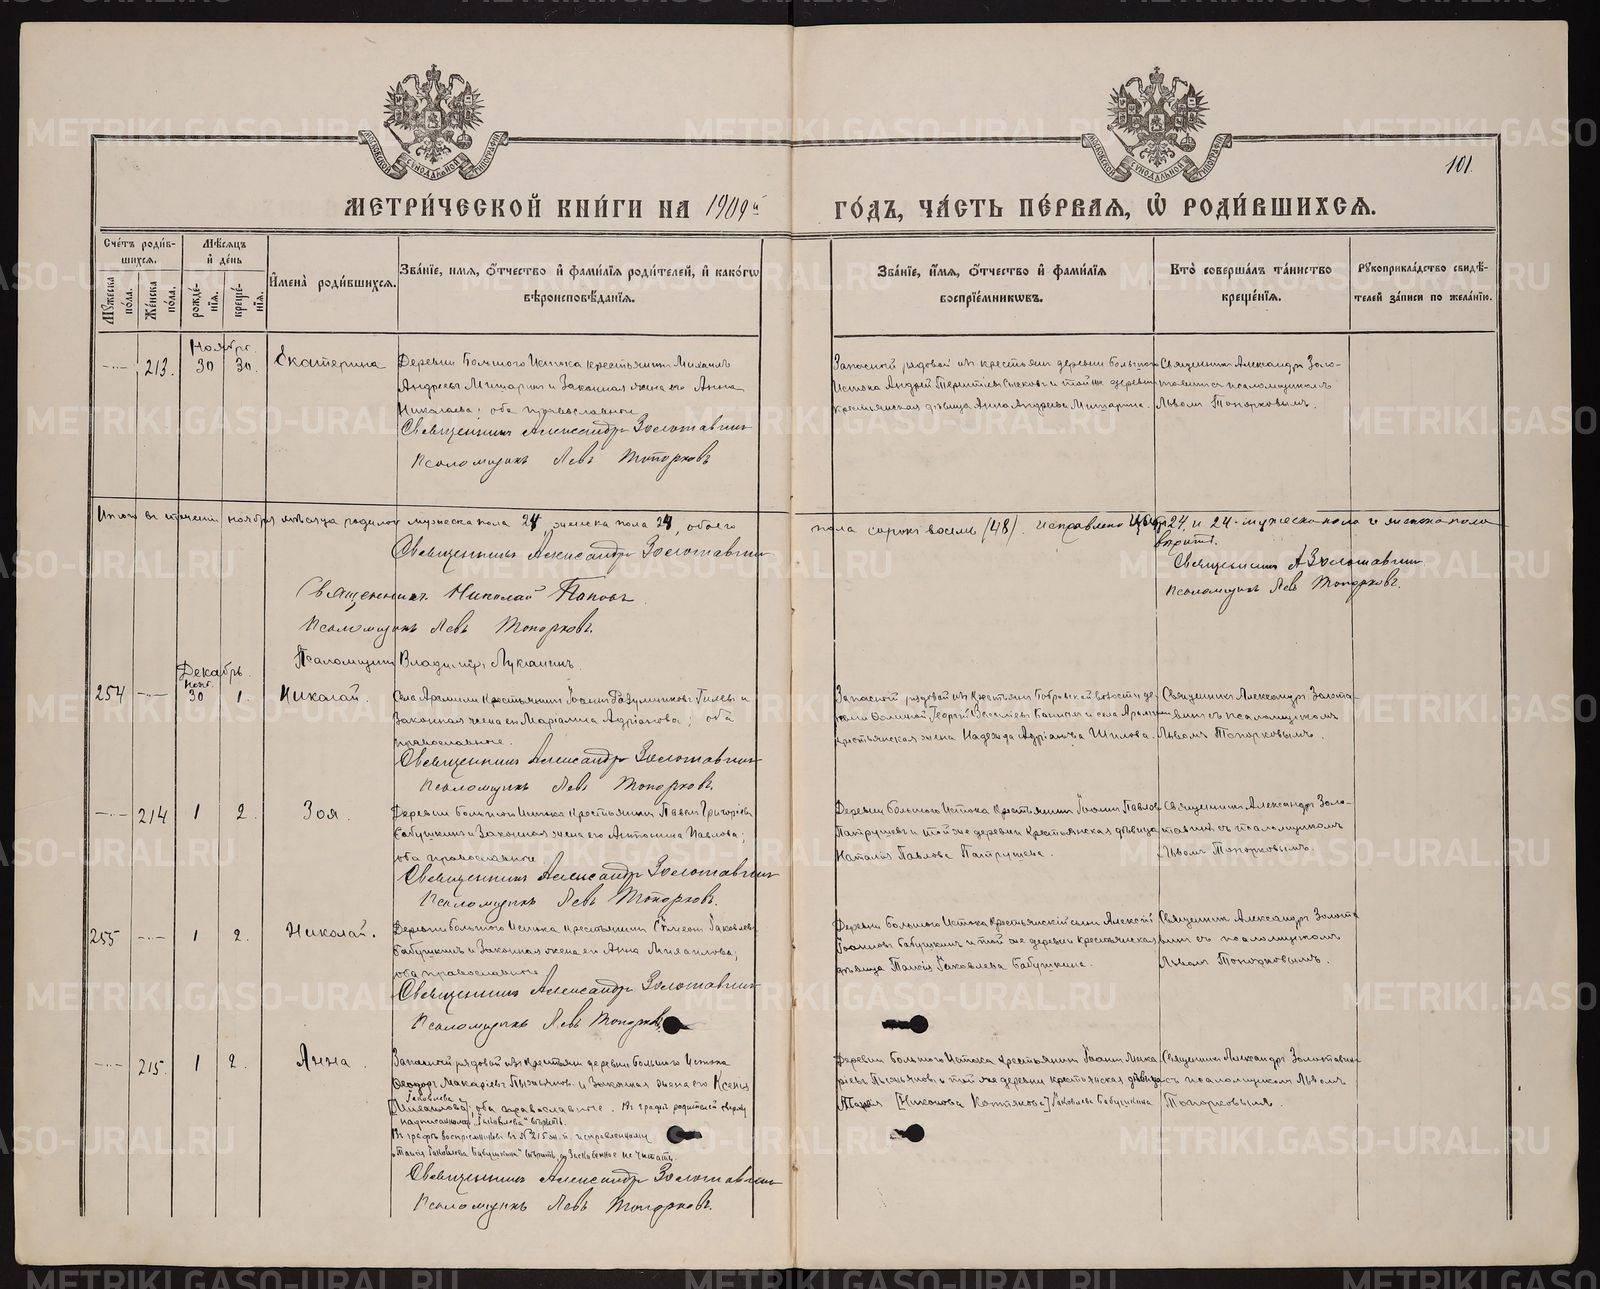 101.
МЕТРИ́ЧЕСКОЙ КНИ́ГИ НА 1909й ГО́ДЪ, ЧА́СТЬ ПЕ́РВАЯ, Ѡ РОДИ́ВШИХСЯ.
Сче́тъ роди́вшихся.
Му́жеска по́ла.
Же́нска по́ла.
Мѣ́сяцъ и́ де́нь
рожде́нїя.
креще́нїя.
И҆мена̀ роди́вшихся.
Зва́нїе, имя, ѻ҆́тчество и҆ фами́лїя роди́телей, и҆ како́гѡ вѣроисповѣ́данїя.
Зва́нїе, и҆́мя, ѻ҆́тчество и҆ фами́лїя воспрїе́мникѡвъ.
Кто̀ соверша́лъ та́инство креще́нїя.
Рꙋкоприкла́дство свидѣ́телей за́писи по жела́нїю.
Ноябрь
213. 30 30. Екатерина
Деревни Большого Истока крестьянин Михаилъ
Андреевъ Мишарин и Законная жена его Анна
Николаева; оба православные
Священникъ Александръ Золотавин
Псаломщикъ Левъ Топорковъ
Запасной рядовой изъ крестьян деревни Большого
Истока Андрей и той же деревни
крестьянская дѣвица Анна Андреева Мишарина.
Священникъ Александръ Золо-
тавинъ съ псаломщикомъ
Львомъ Топорковымъ.
Итого въ течении ноября мѣсяца родилось мужеска пола 24, женска пола 24, обоего
пола сорокъ восемь (48). Исправлено 24 и 24 мужеска пола и женска пола
вѣрить.
Священникъ Александръ Золотавин
Священникъ А Золотавин
Псаломщикъ Левъ Топорковъ.
Священникъ Николай Поповъ
Псаломщикъ Левъ Топорковъ.
Псаломщикъ Владимiръ Луканинъ.
Декабрь
254 Нояб. 30 1. Николай.
Села Арамили Крестьянин Іоанн Гилевъ и
Законная жена его Марiанна Адрiанова; оба
православные.
Священникъ Александръ Золотавин
Псаломщикъ Левъ Топорковъ.
Запасной рядовой изъ Крестьян Бобровской волости де-
ревни Георгiй Василiевъ и села Арамили
Крестьянская жена Надежда Адрiанова Шилова.
Священникъ Александръ Золота-
винъ съ псаломщикомъ
Львомъ Топорковымъ.
214 1 2. Зоя.
Деревни большого Истока Крестьянин Павел Григорiевъ
Бабушкинъ и Законная жена его Антонина Павлова;
оба православные
Священникъ Александръ Золотавин
Псаломщикъ Левъ Топорковъ.
Деревни большого Истока Крестьянин Іоанн Павлов
Патрушевъ и той же деревни Крестьянская дѣвица
Наталiя Павлова Патрушева.
Священникъ Александръ Золо-
тавинъ съ псаломщикомъ
Львомъ Топорковымъ.
255 1 2. Николай.
Деревни большого Истока Крестьянин Симеонъ Яковлевъ
Бабушкинъ и Законная жена его Анна Михаилова;
оба православные
Священникъ Александръ Золотавин
Псаломщикъ Левъ Топорковъ
Деревни большого Истока Крестьянскiй сынъ Алексѣй
Іоанновъ Бабушкинъ и той же деревни Крестьянская
дѣвица Таисiя Яковлева Бабушкина.
Священникъ Александръ Золота-
винъ съ псаломщикомъ
Львомъ Топорковымъ.
215. 1 2. Анна.
Запасной рядовой изъ Крестьян деревни большого Истока
Ѳеодоръ Макарiевъ Пьянковъ и Законная жена его Ксенiя
Яковлева
[Михаилова], оба православные. Въ графѣ родителей сверху
надписанному „Яковлева" вѣрить.
Въ графѣ воспрiемниковъ въ № 215 ж.п. исправленному
„Таисiя Яковлева Бабушкина" вѣрить, а Зачеркнутое не читать.
Священникъ Александръ Золотавин
Псаломщикъ Левъ Топорковъ.
Деревни большого Истока Крестьянин Іоанн Мака-
рiевъ Пьянковъ и той же деревни крестьянская дѣвица
[Никонова Котякова] Яковлева Бабушкина
Священникъ Александръ Золотавин
съ псаломщикомъ Львомъ
Топорковымъ.
METRIKI.GASO-URAL.RU